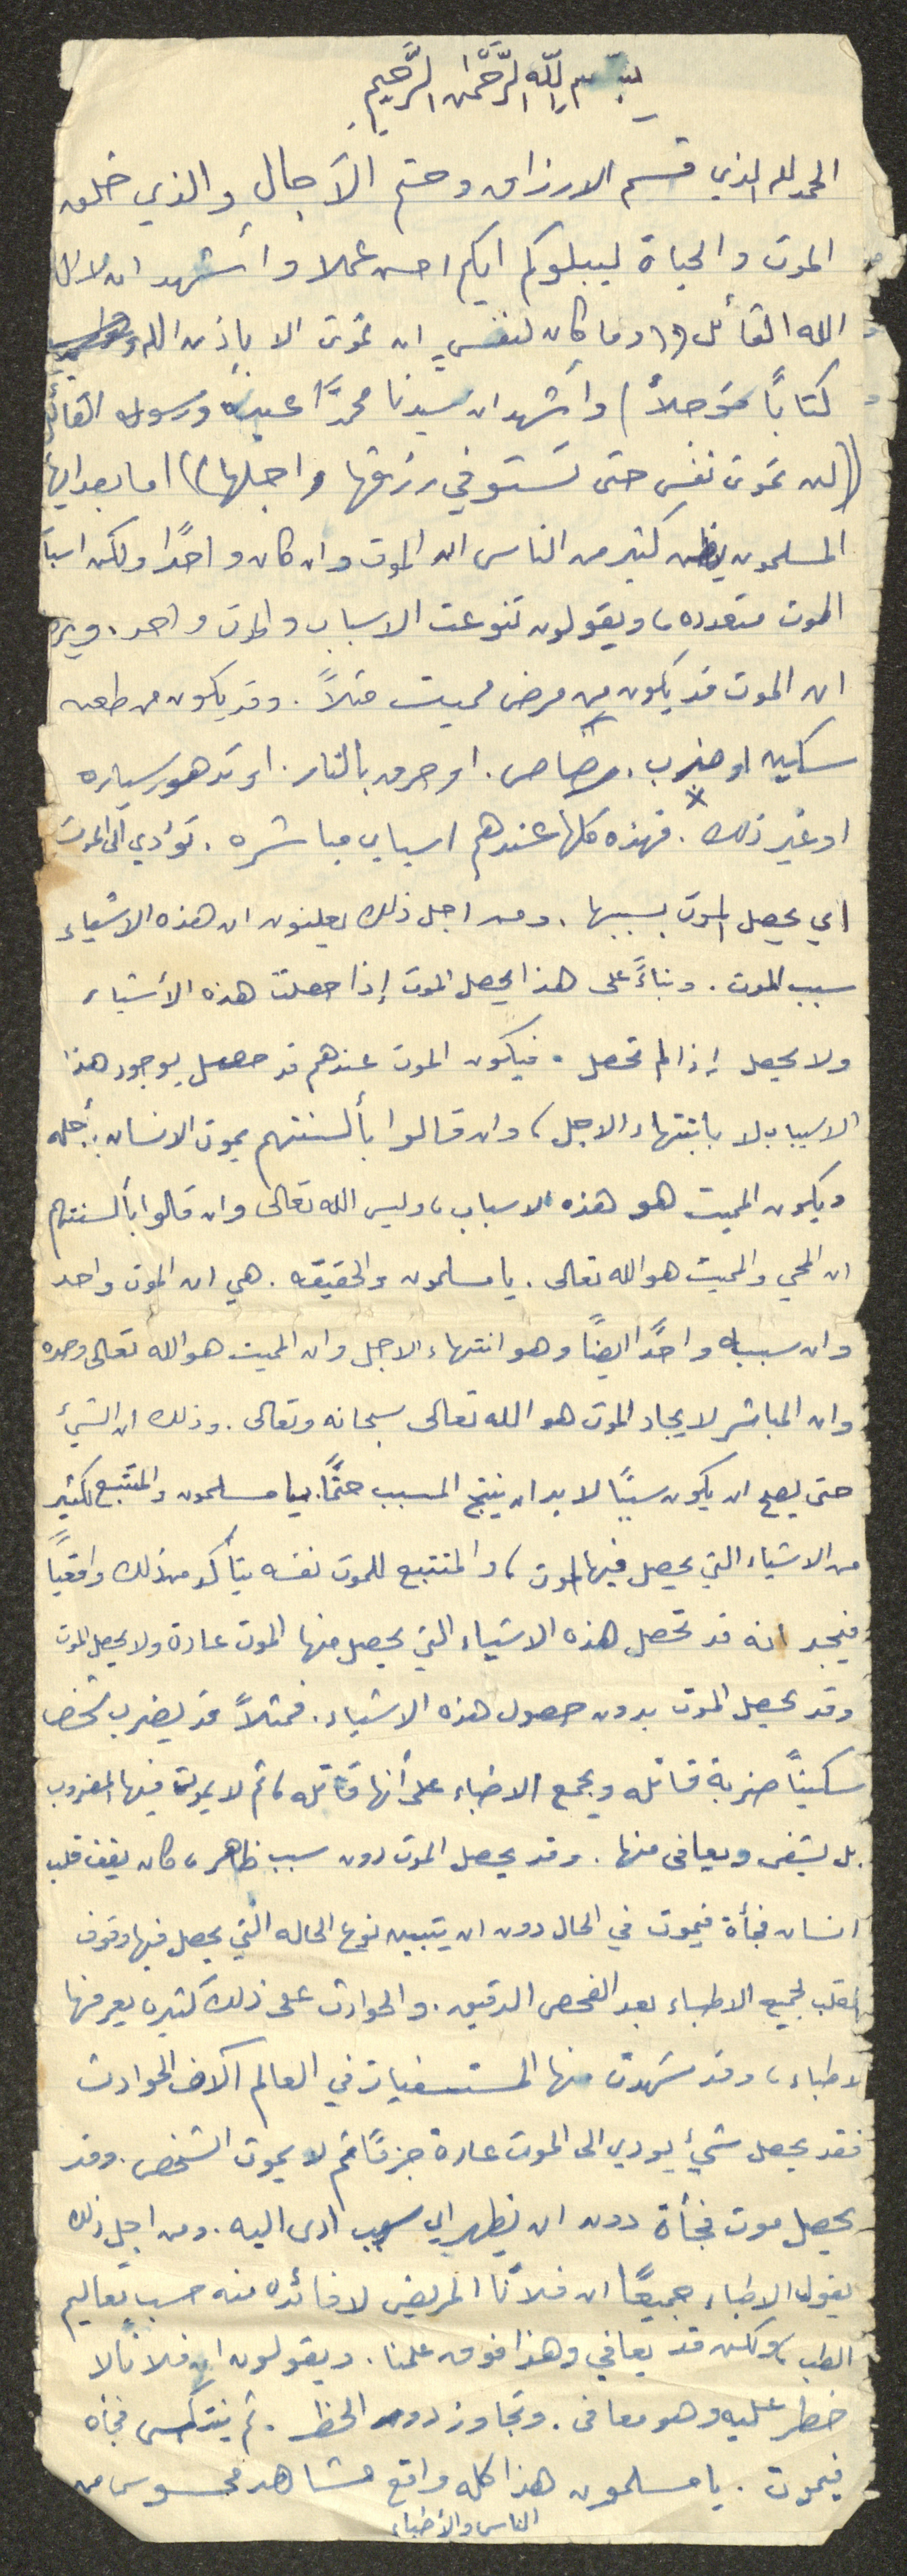 بسم الله الرَّحْمٰن الرَّحيمِ
الحمد لله الذي قسم الارزاق وحتم الآجال والذي خلق
الموت والحياة ليبلوكم ايكم احسن عملا وأشهد ان لا اله
الله القائل (( وما كان لنفسٍ ان تموت الا باذن الله
كتاباً مؤجلاً ) وأشهد ان سيدنا محمدًا عبده ورسوله القائل
((لن تموت نفس حتى تستوفي رزقها واجلها)) اما بعد ايها
المسلمون يظن كثير من الناس ان الموت وان كان واحدًا ولكن اسباب
الموت متعدده، ويقولون تنوعت الاسباب والموت واحد. ويرون
ان الموت قد يكون من مرض مميت مثلاً. وقد يكون من طعنه
سكين او ضرب. رصاص. او حرق بالنار. او تدهور سياره
او غير ذلك. فهذه كلها عندهم اسباب مباشره. تؤدي الى الموت
اي يحصل الموت بسببها. ومن اجل ذلك يعلنون ان هذه الاشياء
سبب الموت. وبناءً على هذا يحصل الموت إذا حصلت هذه الأشياء
ولا يحصل إذا لم تحصل. فيكون الموت عندهم قد حصل بوجود هذا
الاسباب لا بانتهاء الاجل، وان قالوا بألسنتهم يموت الانسان بأجله
ويكون المميت هو هذه الاسباب، وليس الله تعالى وان قالوا بألسنتهم
ان المحي والمميت هو الله تعالى. يا مسلمون والحقيقه. هي ان الموت واحد
وان سببه واحدًا ايضًا وهو انتهاء الاجل وان المميت هو الله تعالى وحده
وان المباشر لايجاد الموت هو الله تعالى سبحانه وتعالى. وذلك ان الشيئ
حتى يصح ان يكون سببًا لا بد ان ينتج المسبب حتمًا. يا مسلمون والمتتبع لكثير
من الاشياء التي يحصل فيها موت، والمتتبع للموت نفسه يتأكد من ذلك واقعياً
فيجد انه قد تحصل هذه الاشياء التي يحصل منها الموت عادة ولا يحصل الموت
وقد يحصل الموت بدون حصول هذه الاشياء. فمثلاً قد يضرب شخص
سكيناً ضربة قاتله ويجمع الاطباء على أنها قاتله، ثم لا يموت فيها المضروب
بل يشفى ويعافى منها. وقد يحصل الموت دون سبب ظاهر، كان يقف قلب
انسان فجأة فيموت في الحال دون ان يتبين نوع الحاله التي يحصل فيها وقوف
القلب لجميع الاطباء بعد الفحص الدقيق. والحوادث على ذلك كثيره يعرفها
لاطباء، وقد شهدت منها المستشفيات في العالم آلاف الحوادث
فقد يحصل شيئ يودي الى الموت عادة جزمًا ثم لا يموت الشخص. وقد
يحصل موت فجأة دون ان يظهر اي سبب ادى اليه. ومن اجل ذلك
يقول الاطباء جميعًا ان فلانًا المريض لا فائده منه حسب تعاليم
الطب، ولكن قد يعافي وهذا فوق علمنا. ويقولون ان فلانًا لا
خطر عليه وهو معافى. وتجاوز دور الخطر. ثم ينتكس فجأه
فيموت. يا مسلمون هذا كله واقع مشاهد محسوس من
الناس والأطباء